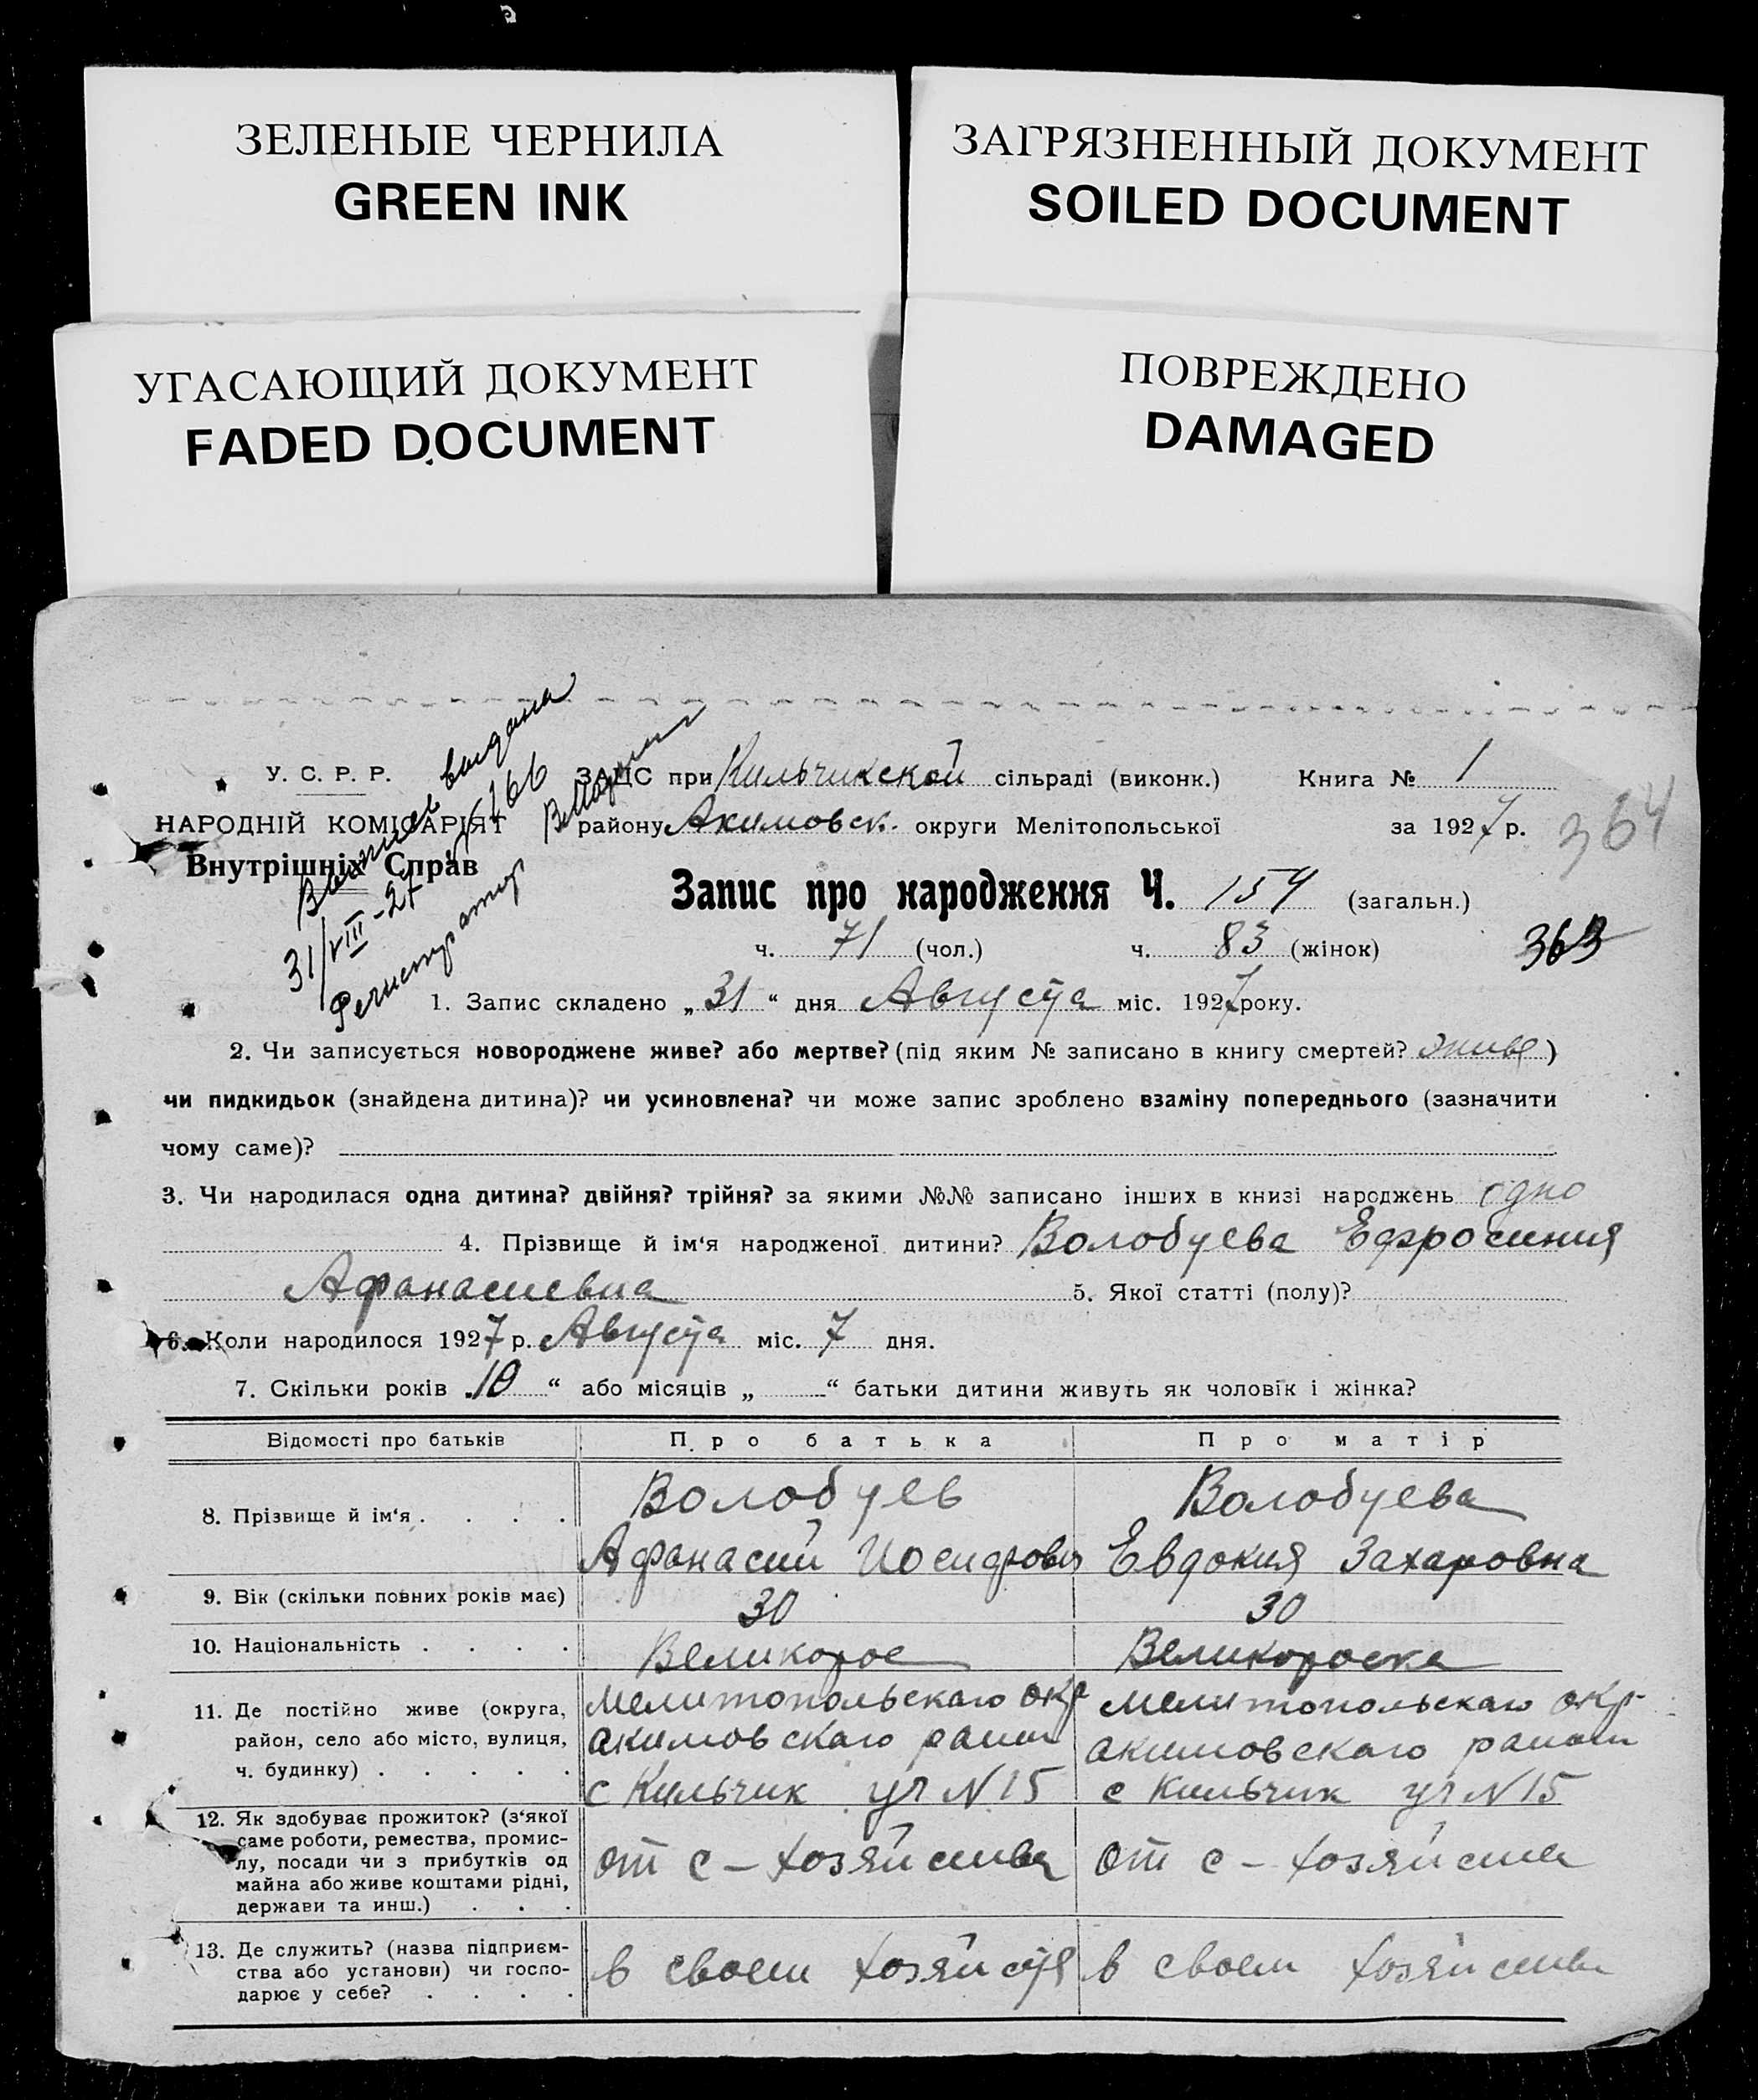 ЗЕЛЕНЫЕ ЧЕРНИЛА
GREEN INK
ЗАГРЯЗНЕННЫЙ ДОКУМЕНТ
SOILED DOCUMENT
УГАСАЮЩИЙ ДОКУМЕНТ
FADED DOCUMENT
ПОВРЕЖДЕНО
DAMAGED
У. С. Р. Р.
НАРОДНІЙ КОМІСАРІЯТ
Внутрішніх Справ
Выпись выдана
31/VIII-27 № 166
Регистратор
ЗАПС при Кильчикской сільраді (виконк.) Книга № 1
району Акимовск. округи Мелітопольської за 1927 р.
364
Запис про народження Ч. 154 (загальн.)
ч. 71 (чол.) ч. 83 (жінок)
363
1. Запис складено „31“ дня Августа міс. 1927 року.
2. Чи записується новороджене живе? або мертве? (під яким № записано в книгу смертей? живе)
чи пидкидьок (знайдена дитина)? чи усиновлена? чи може запис зроблено взаміну попереднього (зазначити
чому саме)?
3. Чи народилася одна дитина? двійня? трійня? за якими №№ записано інших в книзі народжень одно
4. Прізвище й ім‘я народженої дитини? Волобуева Ефросиния
Афанасиевна 5. Якої статті (полу)?
6. Коли народилося 1927 р. Августа міс. 7 дня.
7. Скільки років „10“ або місяців „ “ батьки дитини живуть як чоловік і жінка?
Відомості про батьків Про батька Про матір
8. Прізвище й ім‘я Волобуев Волобуева
Афанасий Иосифович Евдокия Захаровна
9. Вік (скільки повних років має) 30 30
10. Національність Великорос Великороска
11. Де постійно живе (округа, Мелитопольскаго окр Мелитопольскаго окр.
район, село або місто, вулиця, Акимовскаго раион Акимовскаго раиони
ч. будинку) с Кильчик уч N 15 с Кильчик уч N 15
12. Як здобуває прожиток? (з‘якої
саме роботи, ремества, промис-
лу, посади чи з прибутків од от с – хозяйства от с – хозяйства
майна або живе коштами рідні,
держави та инш.)
13. Де служить? (назва підприєм-
ства або установи) чи госпо- в своем хозяйстве в своем хозяйстве
дарює у себе?